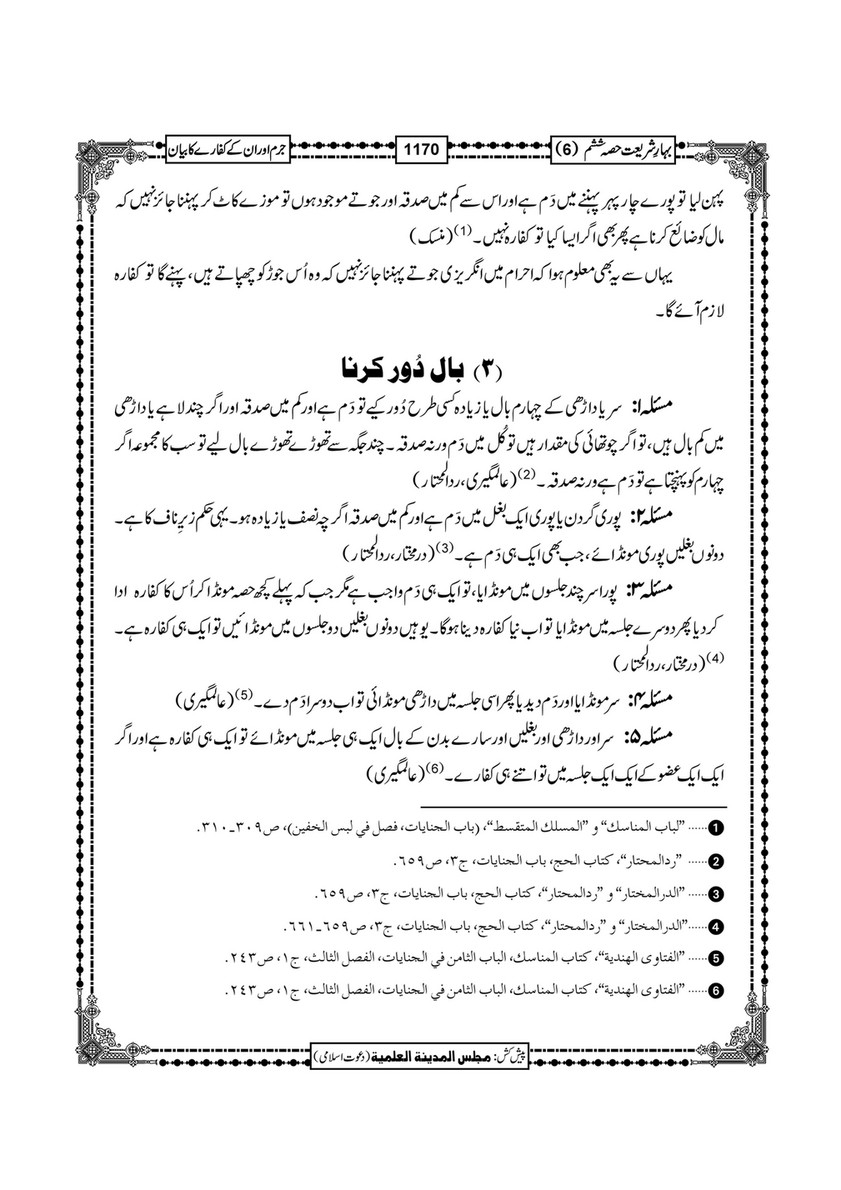 بہارِ شریعت حصہ ششم (6)
1170
جرم اور ان کے کفارے کا بیان
پہن لیا تو پورے چار پہر پہننے میں دَم ہے اور اس سے کم میں صدقہ اور جوتے موجود ہوں تو موزے کاٹ کر پہننا جائز نہیں کہ
مال کو ضائع کرنا ہے پھر بھی اگر ایسا کیا تو کفارہ نہیں۔(1) (منسک)
یہاں سے یہ بھی معلوم ہوا کہ احرام میں انگریزی جوتے پہننا جائز نہیں کہ وہ اُس جوڑ کو چھپاتے ہیں، پہنے گا تو کفارہ
لازم آئے گا۔
(۳) بال دُور کرنا
مسئلہ ۱: سر یا داڑھی کے چہارم بال یا زیادہ کسی طرح دُور کیے تو دَم ہے اور کم میں صدقہ اور اگر چندلا ہے یا داڑھی
میں کم بال ہیں، تو اگر چوتھائی کی مقدار ہیں تو کُل میں دَم ورنہ صدقہ۔ چند جگہ سے تھوڑے تھوڑے بال لیے تو سب کا مجموعہ اگر
چہارم کو پہنچتا ہے تو دَم ہے ورنہ صدقہ۔(2) (عالمگیری، ردالمحتار)
مسئلہ ۲: پوری گردن یا پوری ایک بغل میں دَم ہے اور کم میں صدقہ اگرچہ نصف یا زیادہ ہو۔ یہی حکم زیرِ ناف کا ہے۔
دونوں بغلیں پوری مونڈائے، جب بھی ایک ہی دَم ہے۔(3) (درمختار، ردالمحتار)
مسئلہ ۳: پورا سر چند جلسوں میں مونڈایا، تو ایک ہی دَم واجب ہے مگر جب کہ پہلے کچھ حصہ مونڈا کر اُس کا کفارہ ادا
کر دیا پھر دوسرے جلسہ میں مونڈایا تو اب نیا کفارہ دینا ہوگا۔ یوہیں دونوں بغلیں دو جلسوں میں مونڈائیں تو ایک ہی کفارہ ہے۔
(4) (درمختار، ردالمحتار)
مسئلہ ۴: سر مونڈایا اور دَم دیدیا پھر اسی جلسہ میں داڑھی مونڈائی تو اب دوسرا دَم دے۔(5) (عالمگیری)
مسئلہ ۵: سر اور داڑھی اور بغلیں اور سارے بدن کے بال ایک ہی جلسہ میں مونڈائے تو ایک ہی کفارہ ہے اور اگر
ایک ایک عضو کے ایک ایک جلسہ میں تو اتنے ہی کفارے۔(6) (عالمگیری)
1 ...... "لباب المناسك" و "المسلك المتقسط"، (باب الجنايات، فصل في لبس الخفين)، ص۳۰۹-۳۱۰.
2 ...... "ردالمحتار"، كتاب الحج، باب الجنايات، ج۳، ص۶۵۹.
3 ...... "الدرالمختار" و "ردالمحتار"، كتاب الحج، باب الجنايات، ج۳، ص۶۵۹.
4 ...... "الدرالمختار" و "ردالمحتار"، كتاب الحج، باب الجنايات، ج۳، ص۶۵۹-۶۶۱.
5 ...... "الفتاوى الهندية"، كتاب المناسك، الباب الثامن في الجنايات، الفصل الثالث، ج۱، ص۲٤۳.
6 ...... "الفتاوى الهندية"، كتاب المناسك، الباب الثامن في الجنايات، الفصل الثالث، ج۱، ص۲٤۳.
پیش کش: مجلس المدینة العلمیة (دعوت اسلامی)